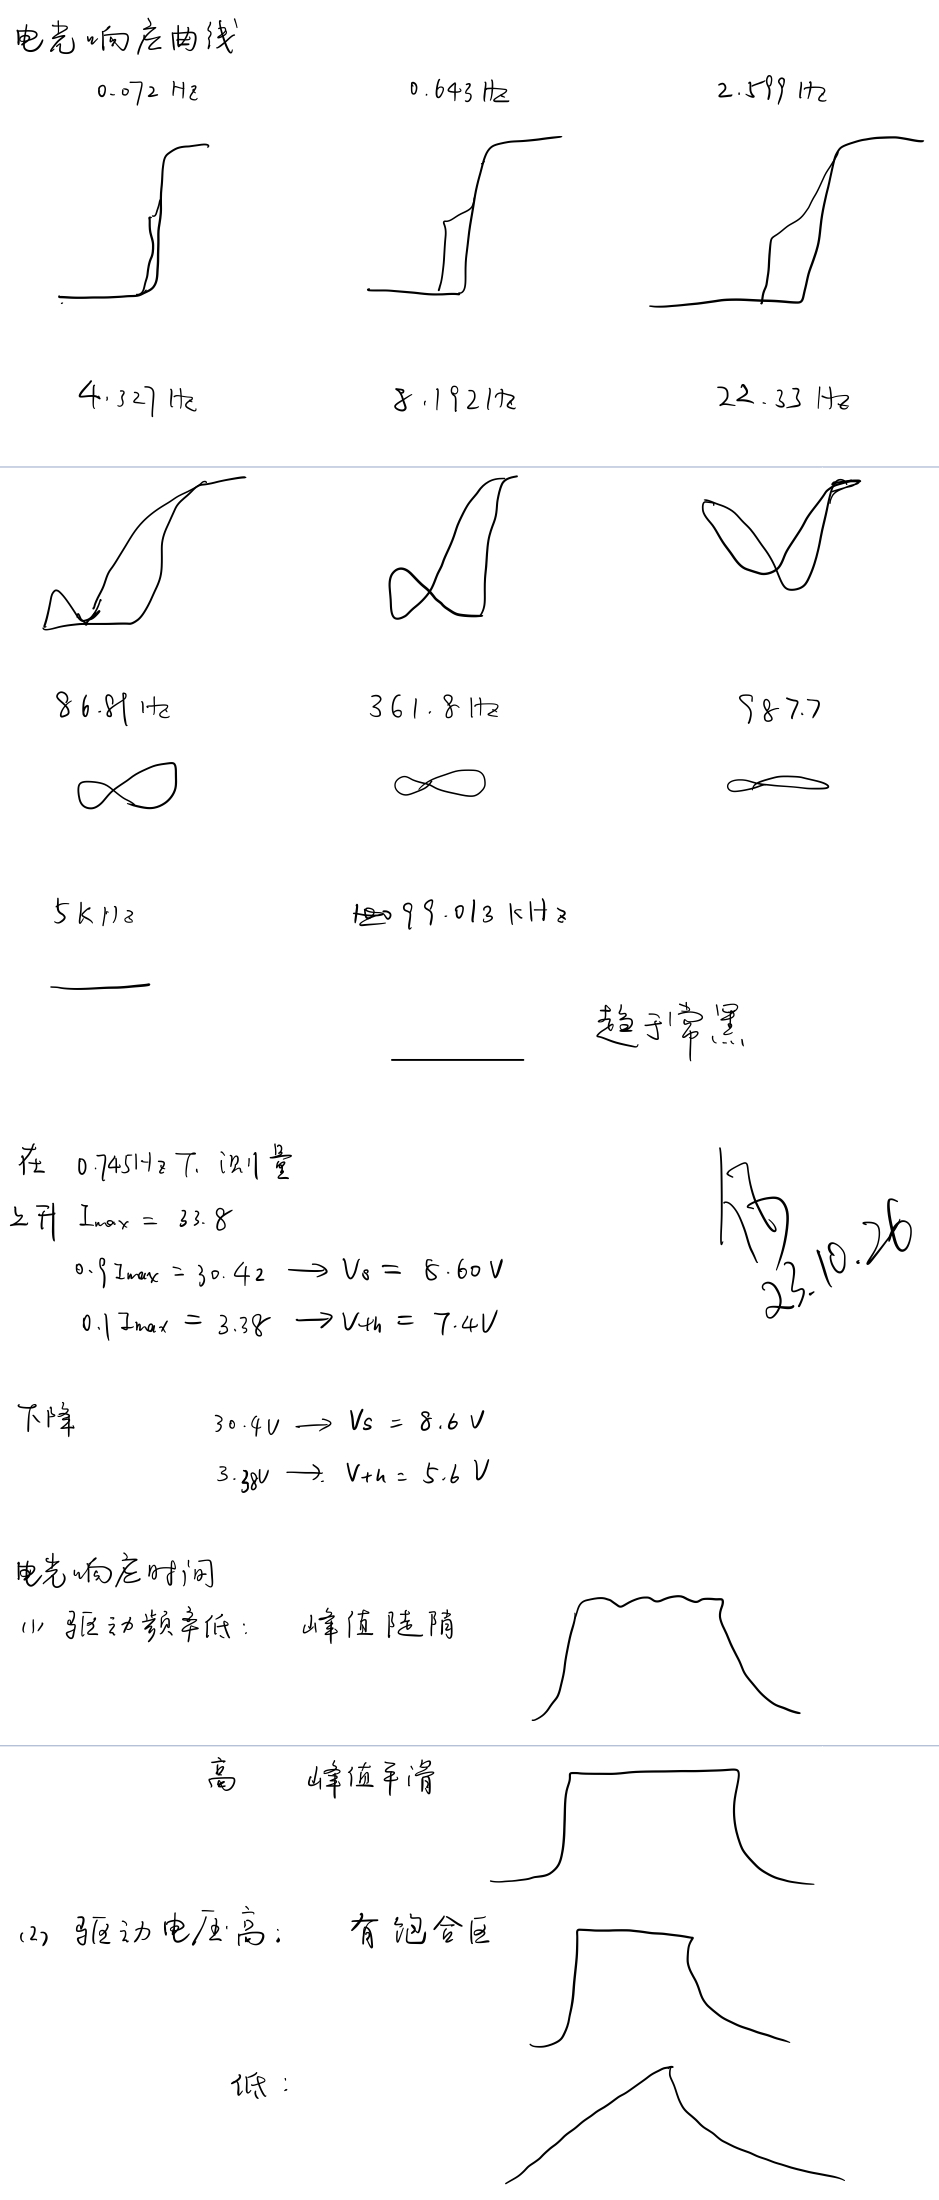 电光响应曲线
0.072 Hz 0.643 Hz 2.599 Hz
4.327 Hz 8.192 Hz 22.33 Hz
86.81 Hz 361.8 Hz 987.7
5 KHz 99.013 kHz
趋于常黑
在 0.745Hz下测量
上升 Imax = 33.8
0.9Imax = 30.42 → Vs = 8.60V
0.1Imax = 3.38 → Vth = 7.4V
23.10.26
下降 30.4V → Vs = 8.6V
3.38V → Vth = 5.6V
电光响应时间
(1) 驱动频率低: 峰值陡峭
高 峰值平滑
(2) 驱动电压高: 有饱合区
低: